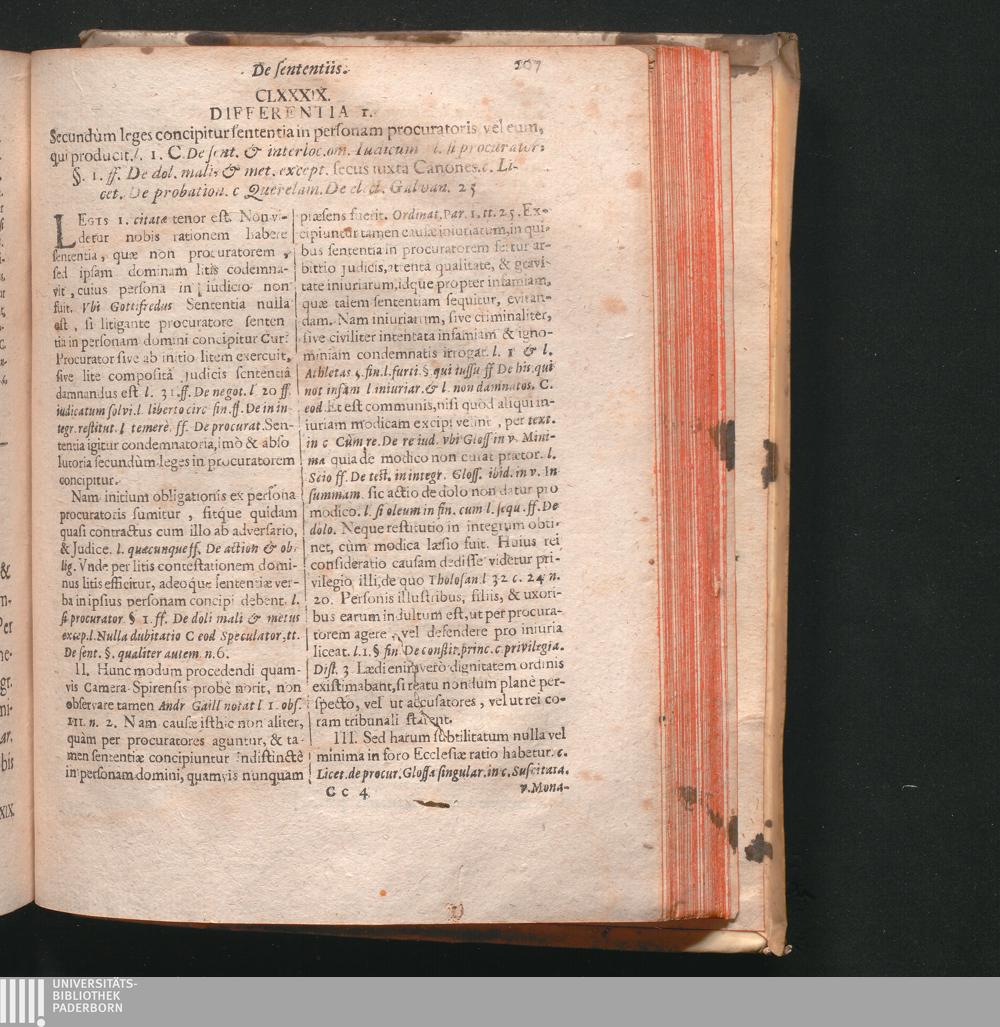 De sententiis.
207
CLXXXIX.
DIFFERENTIA 1.
Secundùm leges concipitur sententia in personam procuratoris vel eum,
qui producit. l. 1. C. De sent. & interloc. om. Iudicum l. si procurator:
§. 1. ff. De dol. malis & met. except. secus iuxta Canones. c. Li-
cet. De probation. c Querelam. De elect. Galvan. 25
LEGIS 1. citatæ tenor est. Non vi-
detur nobis rationem habere
sententia, quæ non procuratorem,
sed ipsam dominam litis codemna-
vit, cuius persona in iudicio non
fuit. Vbi Gottifredus Sententia nulla
est, si litigante procuratore senten
tia in personam domini concipitur Cur?
Procurator sive ab initio litem exercuit,
sive lite composità judicis sententiâ
damnandus est l. 31. ff. De negot. l 20 ff
iudicatum solvi. l. liberto circ fin. ff. De in in-
tegr. restitut. l temerè. ff. De procurat. Sen-
tentia igitur condemnatoria, imò & abso
lutoria secundùm leges in procuratorem
concipitur.
Nam initium obligationis ex persona
procuratoris sumitur, sitque quidam
quasi contractus cum illo ab adversario,
& Judice. l. quæcunque ff. De action & ob-
lig. Vnde per litis contestationem domi-
nus litis efficitur, adeoque sententiæ ver-
ba in ipsius personam concipi debent. l.
si procurator § 1. ff. De doli mali & metus
excep. l. Nulla dubitatio C eod Speculator, tt.
De sent. §. qualiter autem n. 6.
II. Hunc modum procedendi quam-
vis Camera Spirensis probè norit, non
observare tamen Andr Gaill notat l 1. obs.
III. n. 2. Nam causæ isthic non aliter,
quàm per procuratores aguntur, & ta-
men sententiæ concipiuntur indistinctè
in personam domini, quamvis nunquam
præsens fuerit. Ordinat. Par. 1. tt. 25. Ex-
cipiuntur tamen causæ iniuriarum, in qui-
bus sententia in procuratorem fertur ar-
bitrio judicis, attenta qualitate, & gravi-
tate iniuriarum, idque propter infamiam,
quæ talem sententiam sequitur, evitan-
dam. Nam iniuriarum, sive criminaliter,
sive civiliter intentata infamiam & igno-
miniam condemnatis irrogat. l. 1 & l.
Athletas §. fin. l. furti. §. qui iussu ff De his. qui
not infam l iniuriar. & l. non damnatos. C.
eod. Et est communis, nisi quòd aliqui in-
iuriam modicam excipi velint, per text.
in c Cùm re. De re iud. vbi Gloss in v. Mini-
ma quia de modico non curat prætor. l.
Scio ff. De test. in integr. Gloss. ibid. in v. In
summam. sic actio de dolo non datur pro
modico. l. si oleum in fin. cum l. sequ. ff. De
dolo. Neque restitutio in integrum obti-
net, cùm modica læsio fuit. Huius rei
consideratio causam dedisse videtur pri-
vilegio illi, de quo Tholosan. l 32 c. 24 n.
20. Personis illustribus, filiis, & uxori-
bus earum indultum est, ut per procura-
torem agere, vel defendere pro iniuria
liceat. l. 1. § fin De constit. princ. c privilegia.
Dist. 3 Lædi enim verò dignitatem ordinis
existimabant, si reatu nondum planè per-
specto, vel ut accusatores, vel ut rei co-
ram tribunali starent.
III. Sed harum subtilitatum nulla vel
minima in foro Ecclesiæ ratio habetur. c.
Licet. de procur. Glossa singular. in c. Suscitata.
C c 4
v. Mona-
UNIVERSITÄTS-
BIBLIOTHEK
PADERBORN